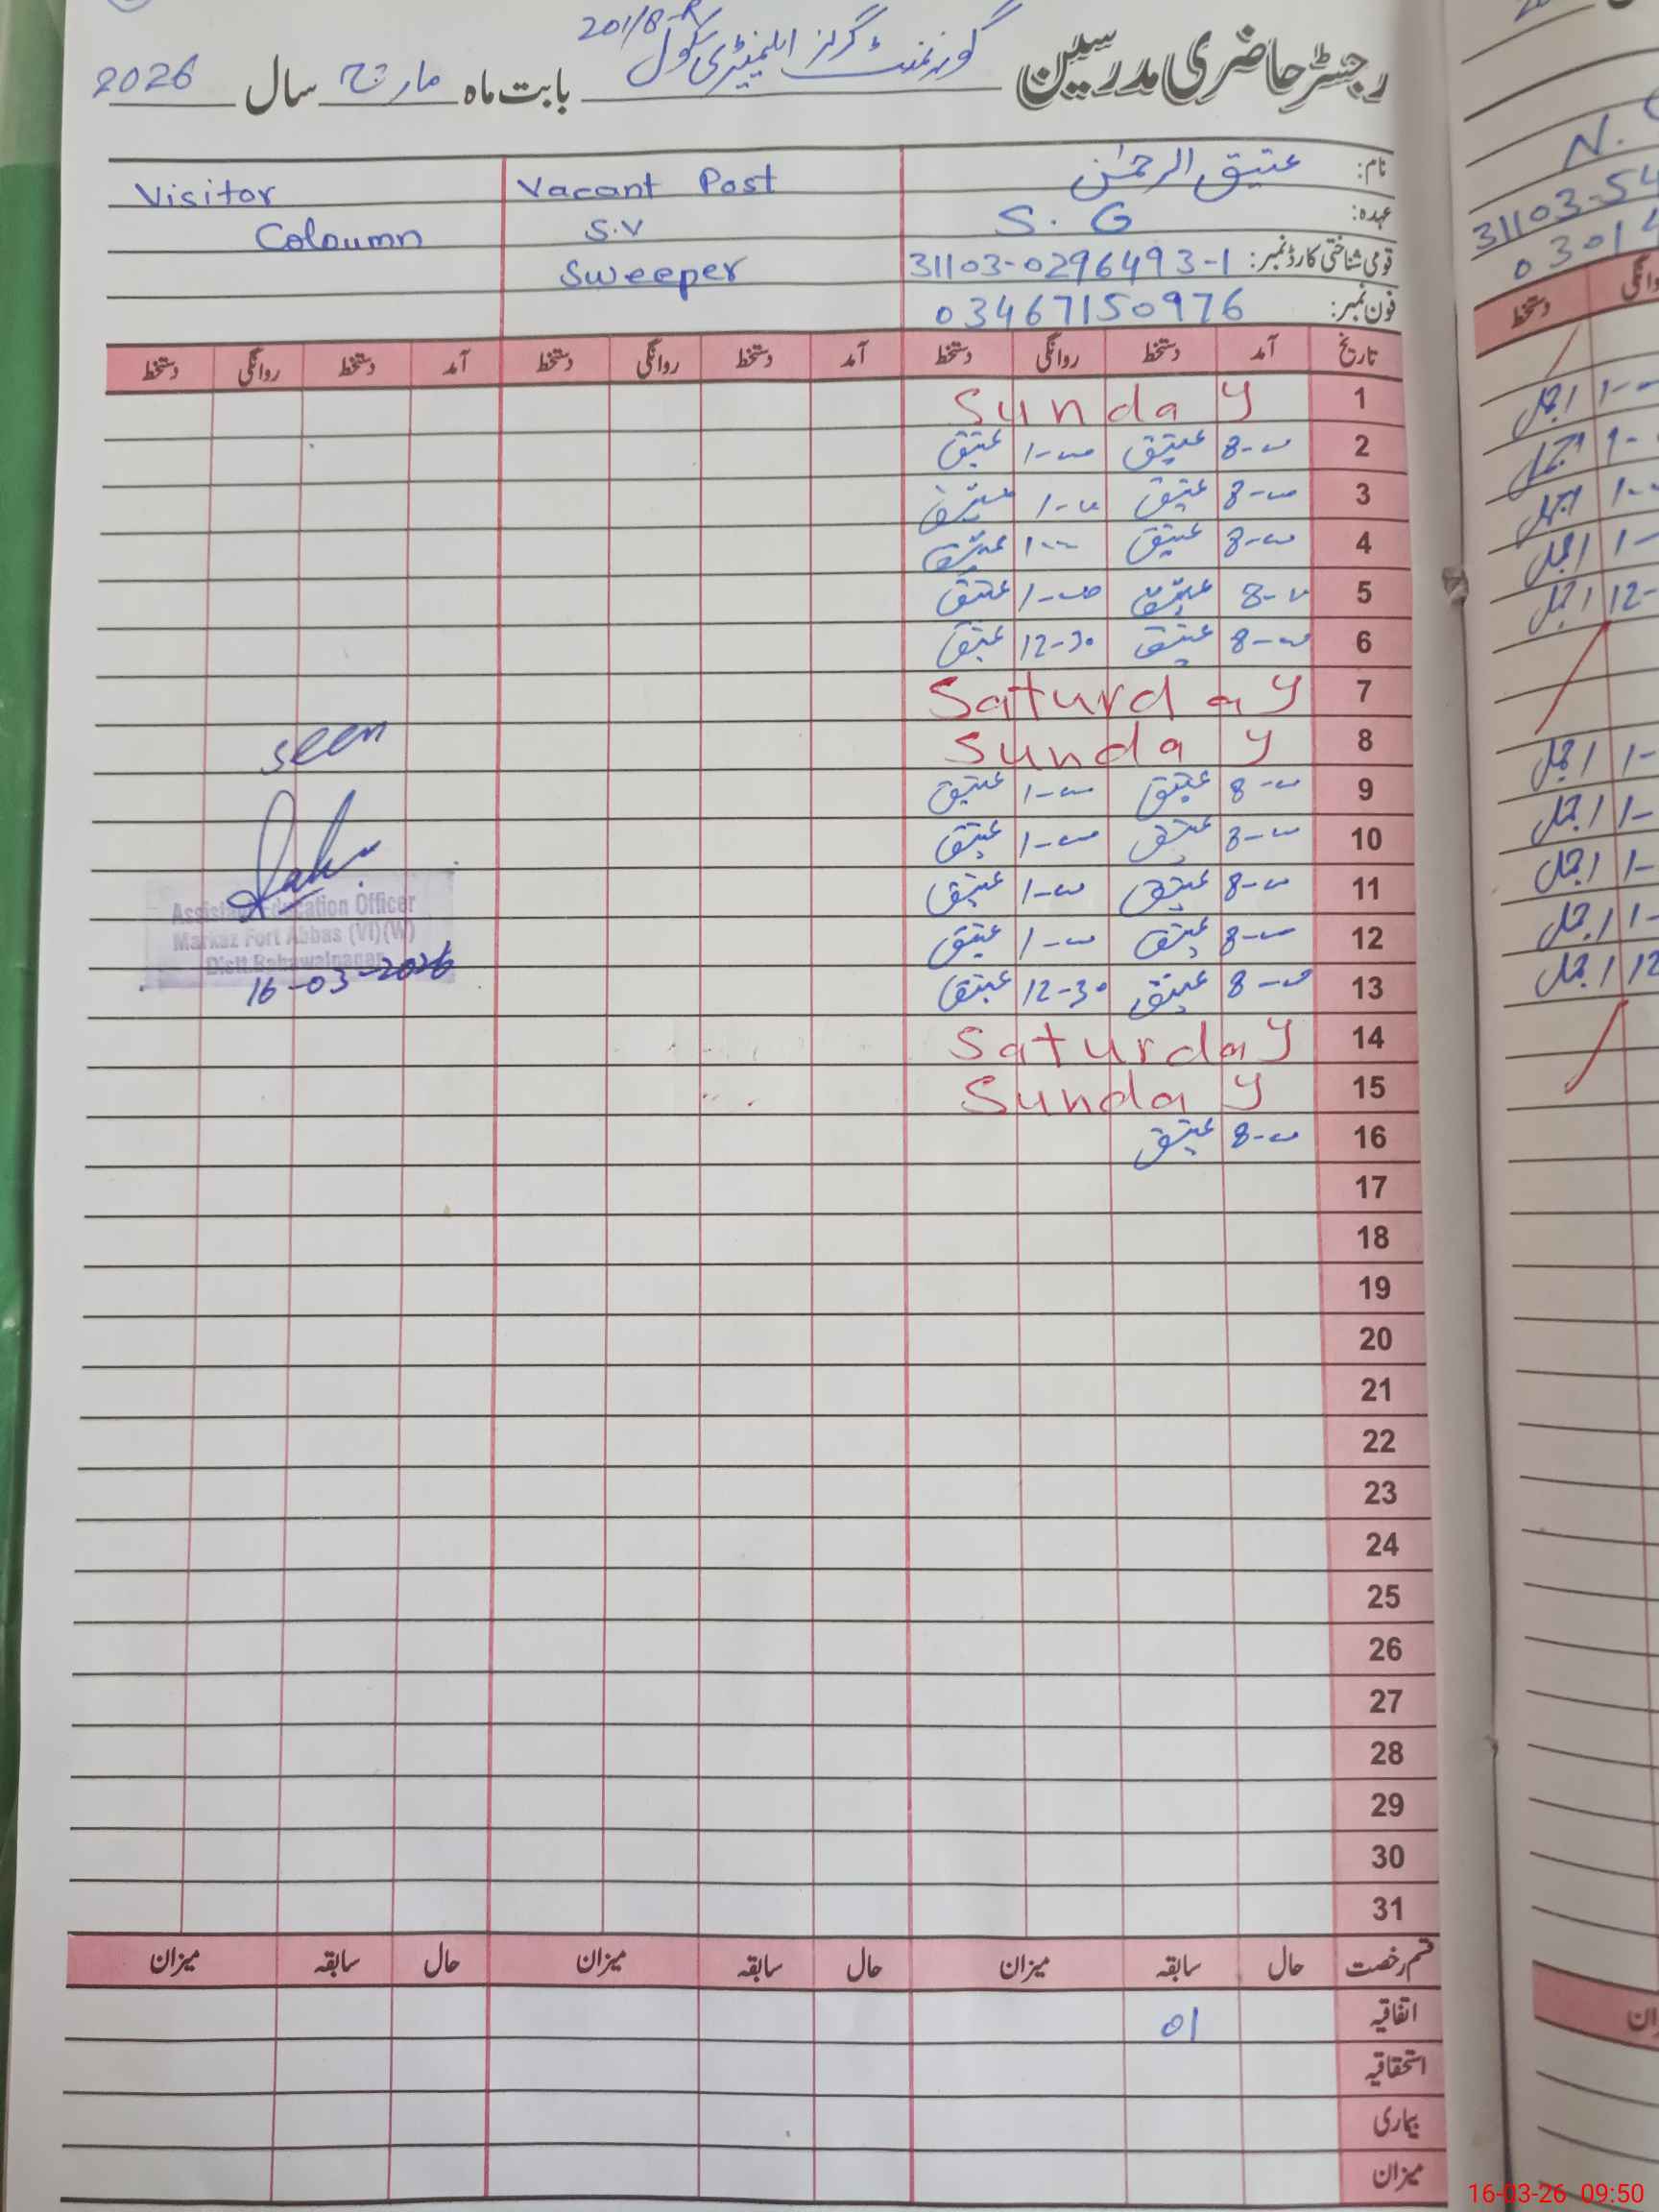 201/8-R
رجسٹر حاضری مدرسین گورنمنٹ گرلز ایلیمنٹری سکول بابت ماہ مارچ سال 2026
نام: عتیق الرحمٰن
عہدہ: S. G
قومی شناختی کارڈ نمبر: 31103-0296493-1
فون نمبر: 03467150976
Vacant Post
S.V
Sweeper
Visitor
Coloumn
تاریخ آمد دستخط روانگی دستخط آمد دستخط روانگی دستخط آمد دستخط روانگی دستخط
1 Sunday
2 8-00 عتیق 1-00 عتیق
3 8-00 عتیق 1-00 عتیق
4 8-00 عتیق 1-00 عتیق
5 8-00 عتیق 1-00 عتیق
6 8-00 عتیق 12-30 عتیق
7 Saturday
8 Sunday
9 8-00 عتیق 1-00 عتیق
10 8-00 عتیق 1-00 عتیق
11 8-00 عتیق 1-00 عتیق
12 8-00 عتیق 1-00 عتیق
13 8-00 عتیق 12-30 عتیق
14 Saturday
15 Sunday
16 8-00 عتیق
17
18
19
20
21
22
23
24
25
26
27
28
29
30
31
seen
Assistant Education Officer
Markaz Fort Abbas (VI)(W)
Distt.Bahawalnagar
16-03-2026
قسم رخصت حال سابقہ میزان حال سابقہ میزان حال سابقہ میزان
اتفاقیہ 01
استحقاقیہ
بیماری
میزان
N.
31103-54
03014
روانگی دستخط
1-00 اجمل
1- اجمل
1- اجمل
1- اجمل
12- اجمل
1- اجمل
1- اجمل
1- اجمل
1- اجمل
12 اجمل
16-03-26 09:50